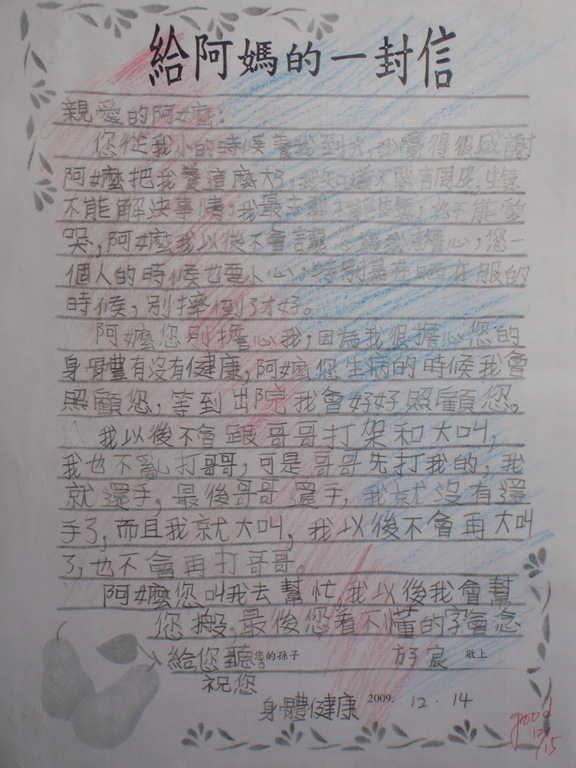 給阿媽的一封信
親愛的阿嬤:
您從我小的時候養我到大,我覺得很感謝
阿嬤把我養這麼大了,我知道不要有
不能解決事情,我最
哭,阿嬤我以後不會讓您擔心,您一
個人的時候也要小心,特別是在晒衣服的
時候,別摔倒了才好。
阿嬤您別擔心我,因為我很擔心您的
身體有沒有健康,阿嬤您生病的時候我會
照顧您,等到出院我會好好照顧您。
我以後不會跟哥哥打架和大叫,
我也不亂打哥哥,可是哥哥先打我的,我
就還手,最後哥哥還手,我就沒有還
手了,而且我就大叫,我以後不會再大叫
了,也不會再打哥哥。
阿嬤您叫我去幫忙我以後我會幫
您搬,最後您看不懂的字會念
給您聽 您的孫子 宸 敬上
祝您
身體健康 2009. 12.14
good
12/15